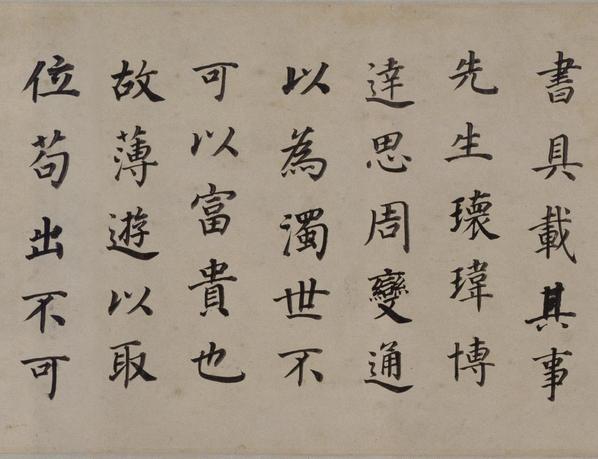 書具載其事
先生瓌瑋博
達思周變通
以為濁世不
可以富貴也
故薄遊以取
位苟出不可